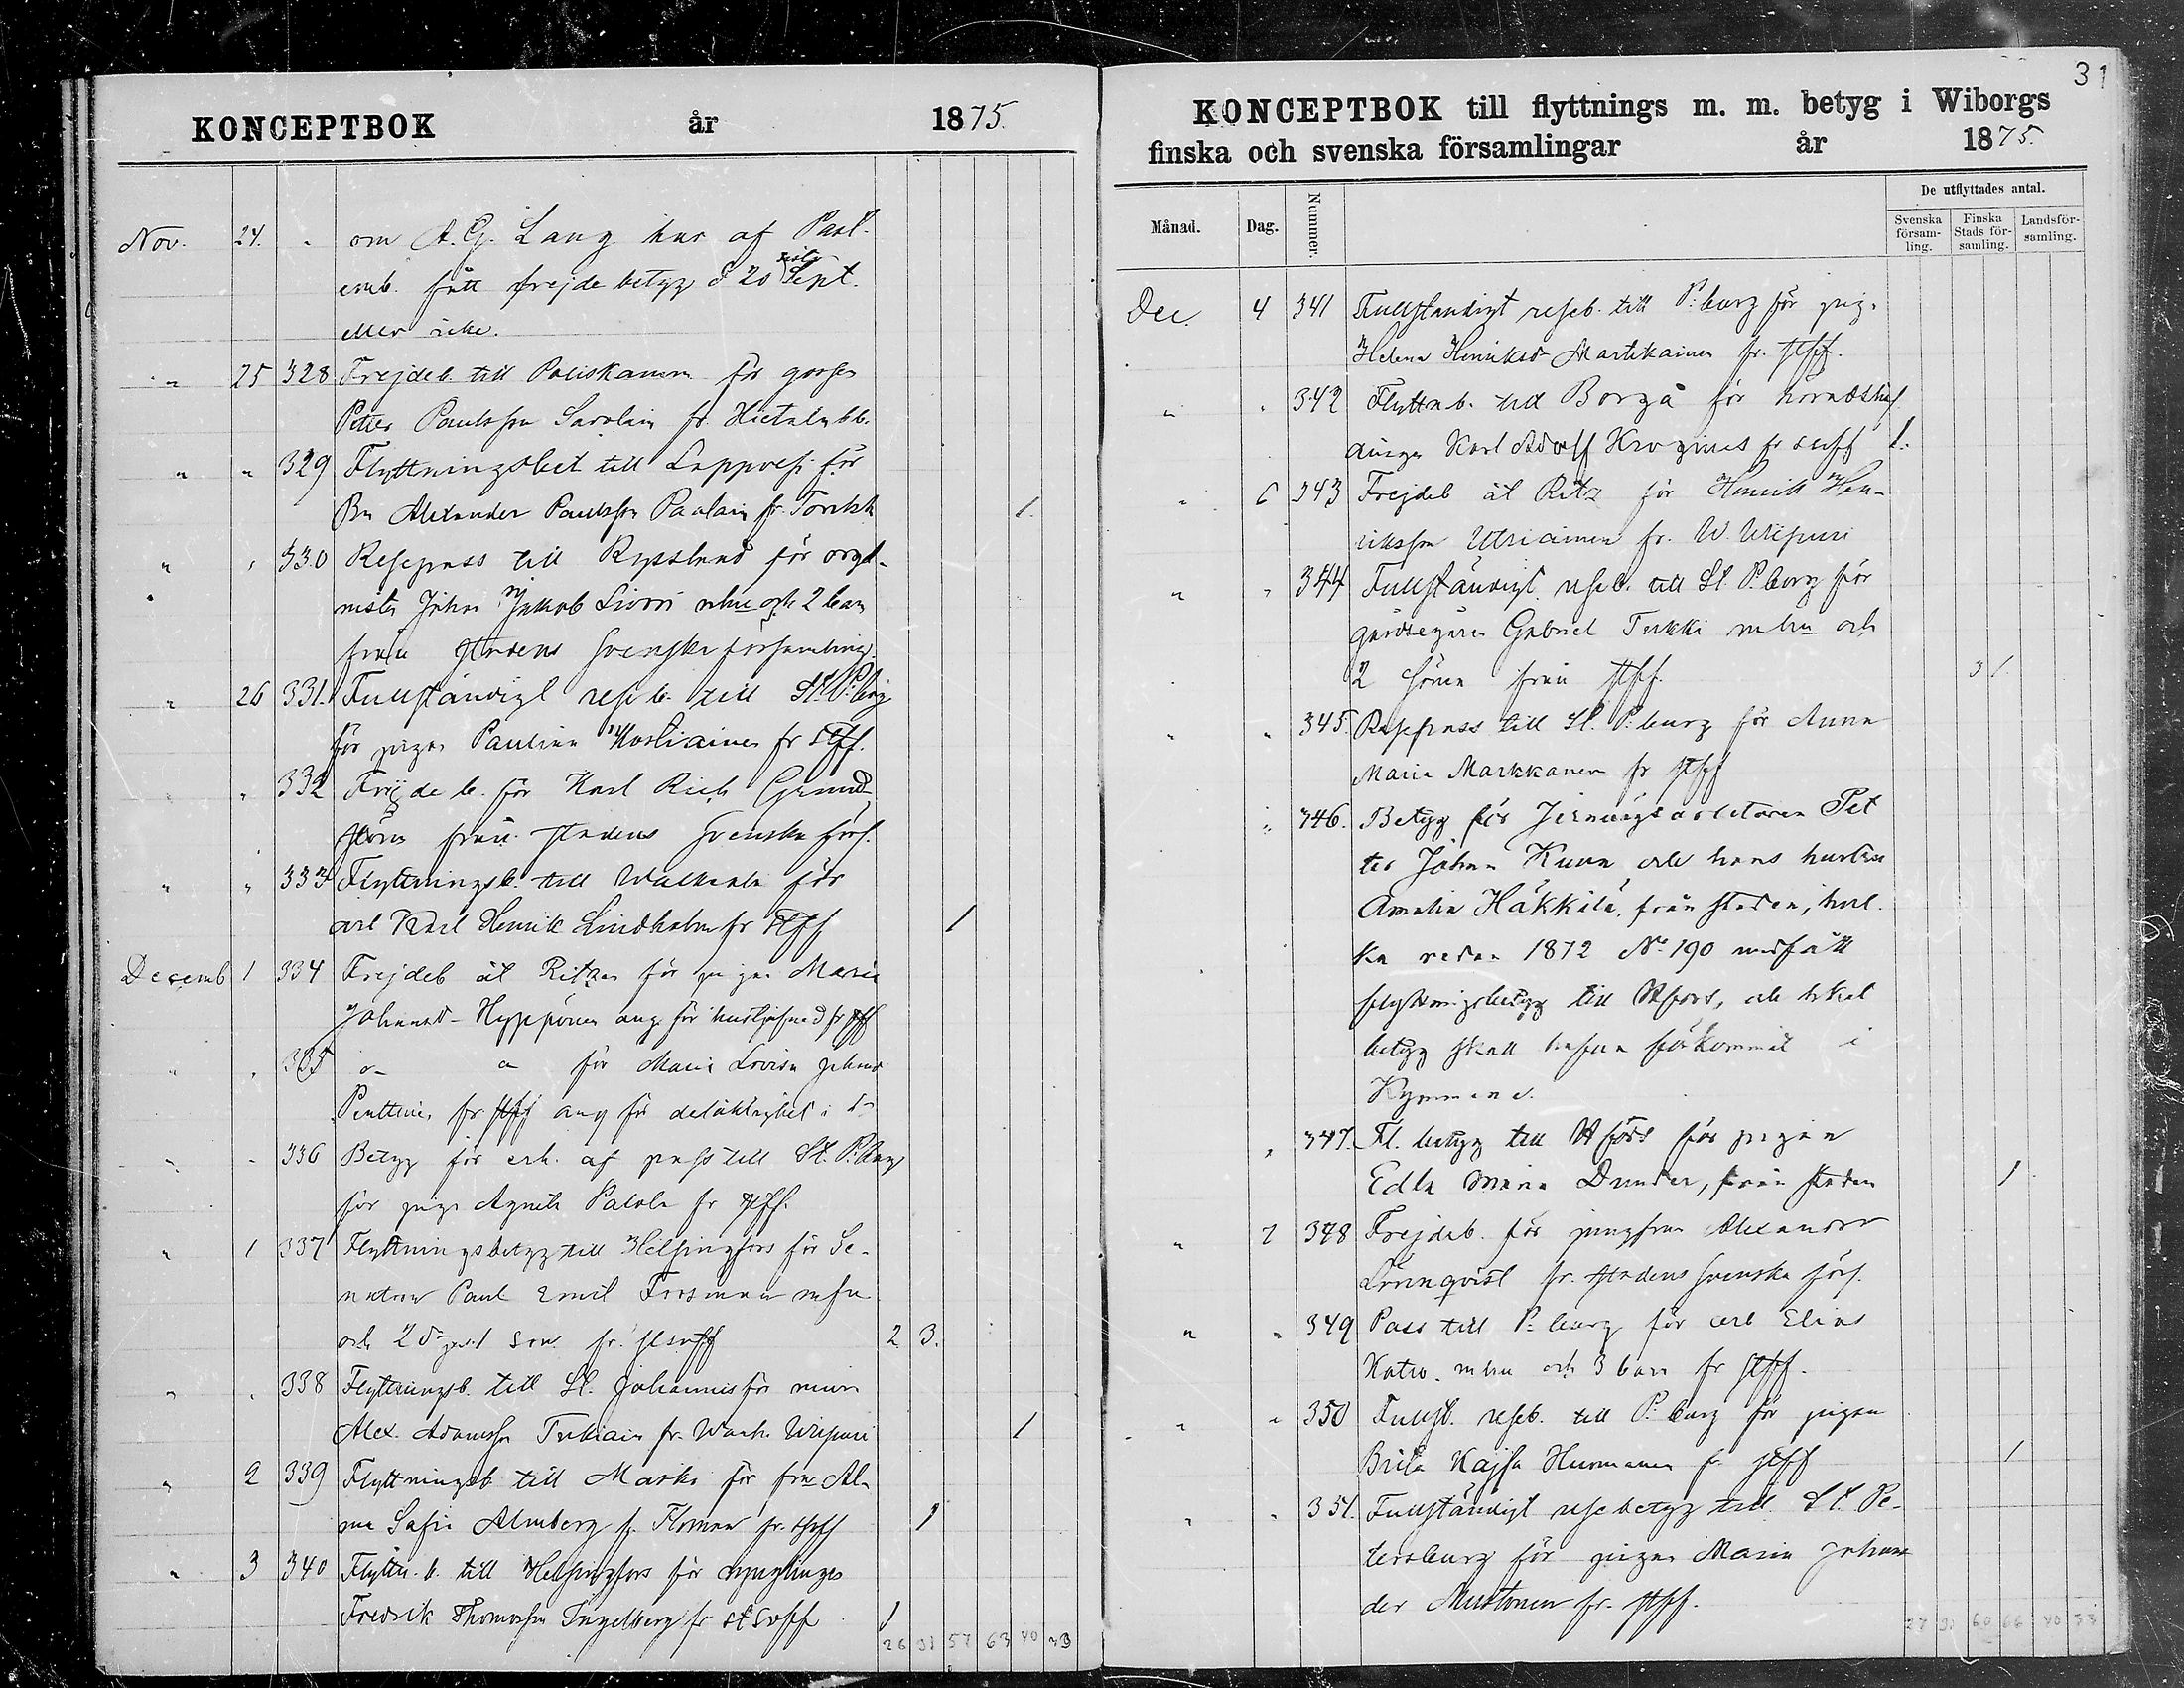 KONCEPTBOK år 1875.
Nov. 24. om A. G. Lang har af Past.
emb. fått frejdebetyg d 20 sistl. Sept.
eller icke.
" 25 328 Frejdeb. till Poliskamm för gossen
Petter Paulsson Sarolain fr. Hietala bb.
" " 329 Flyttningsbet till Lappvesi för
Bn Alexander Paulsson Paalain fr. 1.
" " 330 Resepass till Ryssland för orga-
nisten Johan Jakob Sivori mhu och 2 barn
från stadens Svenska församling.
" 26 331. Fullständigt reseb. till St. P:burg
för pigan Paulina fr stff.
" 332 Frejdeb. för Karl Rich Grund-
ström från stadens Svenska förs.
" " 333 Flyttningsb. till Walkeala för
arb Karl Henrik Lindholm fr stff 1
Decemb 1 334 Frejdeb åt för pigan Maria
Johansd- Hyppönen ang för fr stff
" " 335 d- o för Maria Lovisa Johansd
Penttinen fr stff ang för delaktighet i d-
" - 336 Betyg för erh. af pass till St. P:burg
för pigan Agneta Patola fr stff.
" 1 337 Flyttningsbetyg till Helsingfors för Se-
natorn Paul Emil Forsman mhu
och 2 d- jemt 1 son fr. stsvff 2 3.
" " 338 Flyttningsb. till St. Johannis för
Alex. Adamsson Tukiain fr. Wanh. Wiipuri 1
" 2 339 Flyttningsb till Marks för fru Al-
ma Sofia Almberg f. Floman fr. 1
" 3 340 Flyttn. b. till Helsingfors för ynglingen
Fredrik Thomasson Ingelberg fr stsvff 1
26 57 63 40 33
31
KONCEPTBOK till flyttnings m. m. betyg i Wiborgs
finska och svenska församlingar år 1875.
Månad. Dag. Nummer. De utflyttades antal.
Svenska församling. Finska Stads församling. Landsförsamling.
Dec. 4 341 Fullständigt reseb. till P:burg för pig.
Helena Henriksd Martikainen fr. stff.
" " 342 Flyttn b. till Borgå för
Karl Adolf Krogius fr svff 1.
" 6 343 Frejdeb åt för Henrik Hen-
riksson Utriainen fr. W. Wiipuri
" " 344 Fullständigt reseb. till St P:burg för
gårdsegaren Gabriel Tukki mhu och
2 söner från stff. 3 1
" " 345. Resepass till St. P:burg för Anna
Maria Markkanen fr stff
" 346. Betyg för Jernvägsarbetaren Pet
ter Johan Kuwa och hans hustru
Amalia Häkkilä, från staden, hvil-
ka redan 1872 No 190 undfått
flyttningsbetyg till Hfors, och hvilket
betyg skall hafva förkommit i
Kymmene.
" 347. Fl. betyg till Hfors för pigan
Edla Maria Dunder, från staden 1
" 7 348 Frejdeb. för jungfrun Alexandra
Lönnqvist fr. stadens svenska förs.
" " 349 Pass till P:burg för arb Elias
Katro. mhu och 3 barn fr stff.
" " 350 Fullst. reseb. till P:burg för pigan
Brita Kajsa Hurmanen fr stff 1
" " 351. Fullständigt resebetyg till St. Pe-
tersburg för pigan Maria Johans
der Mustonen fr. stff.
27 60 66 40 33